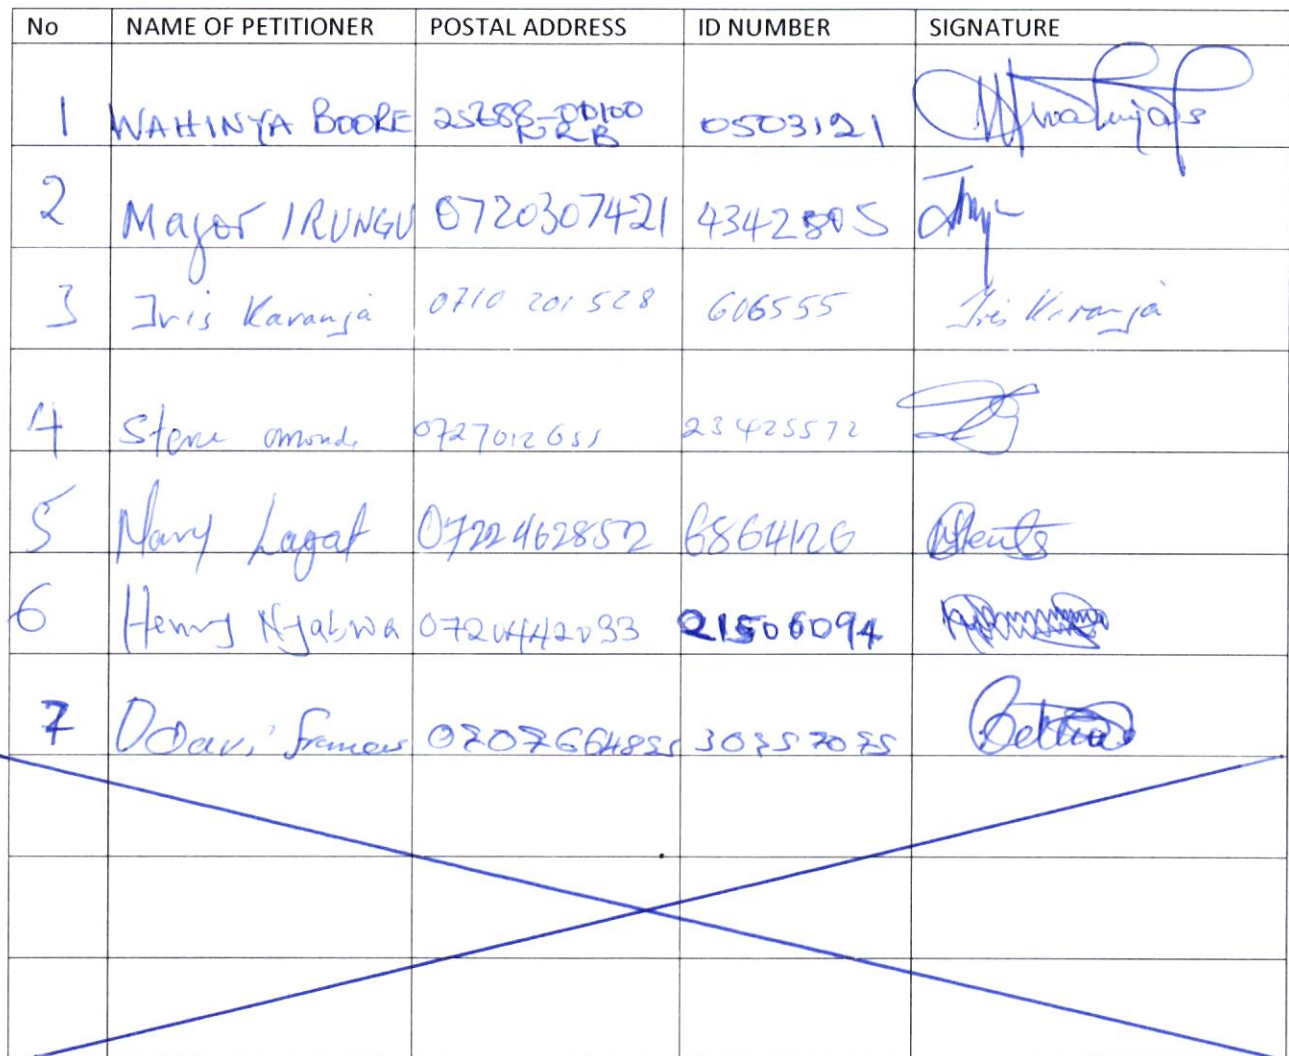 No NAME OF PETITIONER POSTAL ADDRESS ID NUMBER SIGNATURE
1 WAHINYA BOORE 25288-00100 0503121
NRB
2 Major IRUNGU 0720307421 4342805
3 Iris Karanja 0710 201528 606555 Iris Karanja
4 Steve omondi 0727012651 23425572
5 Mary Lagat 0722462852 6864126
6 Henry 0720442033 21506094
7 Odawi francis 0707664855 30757075